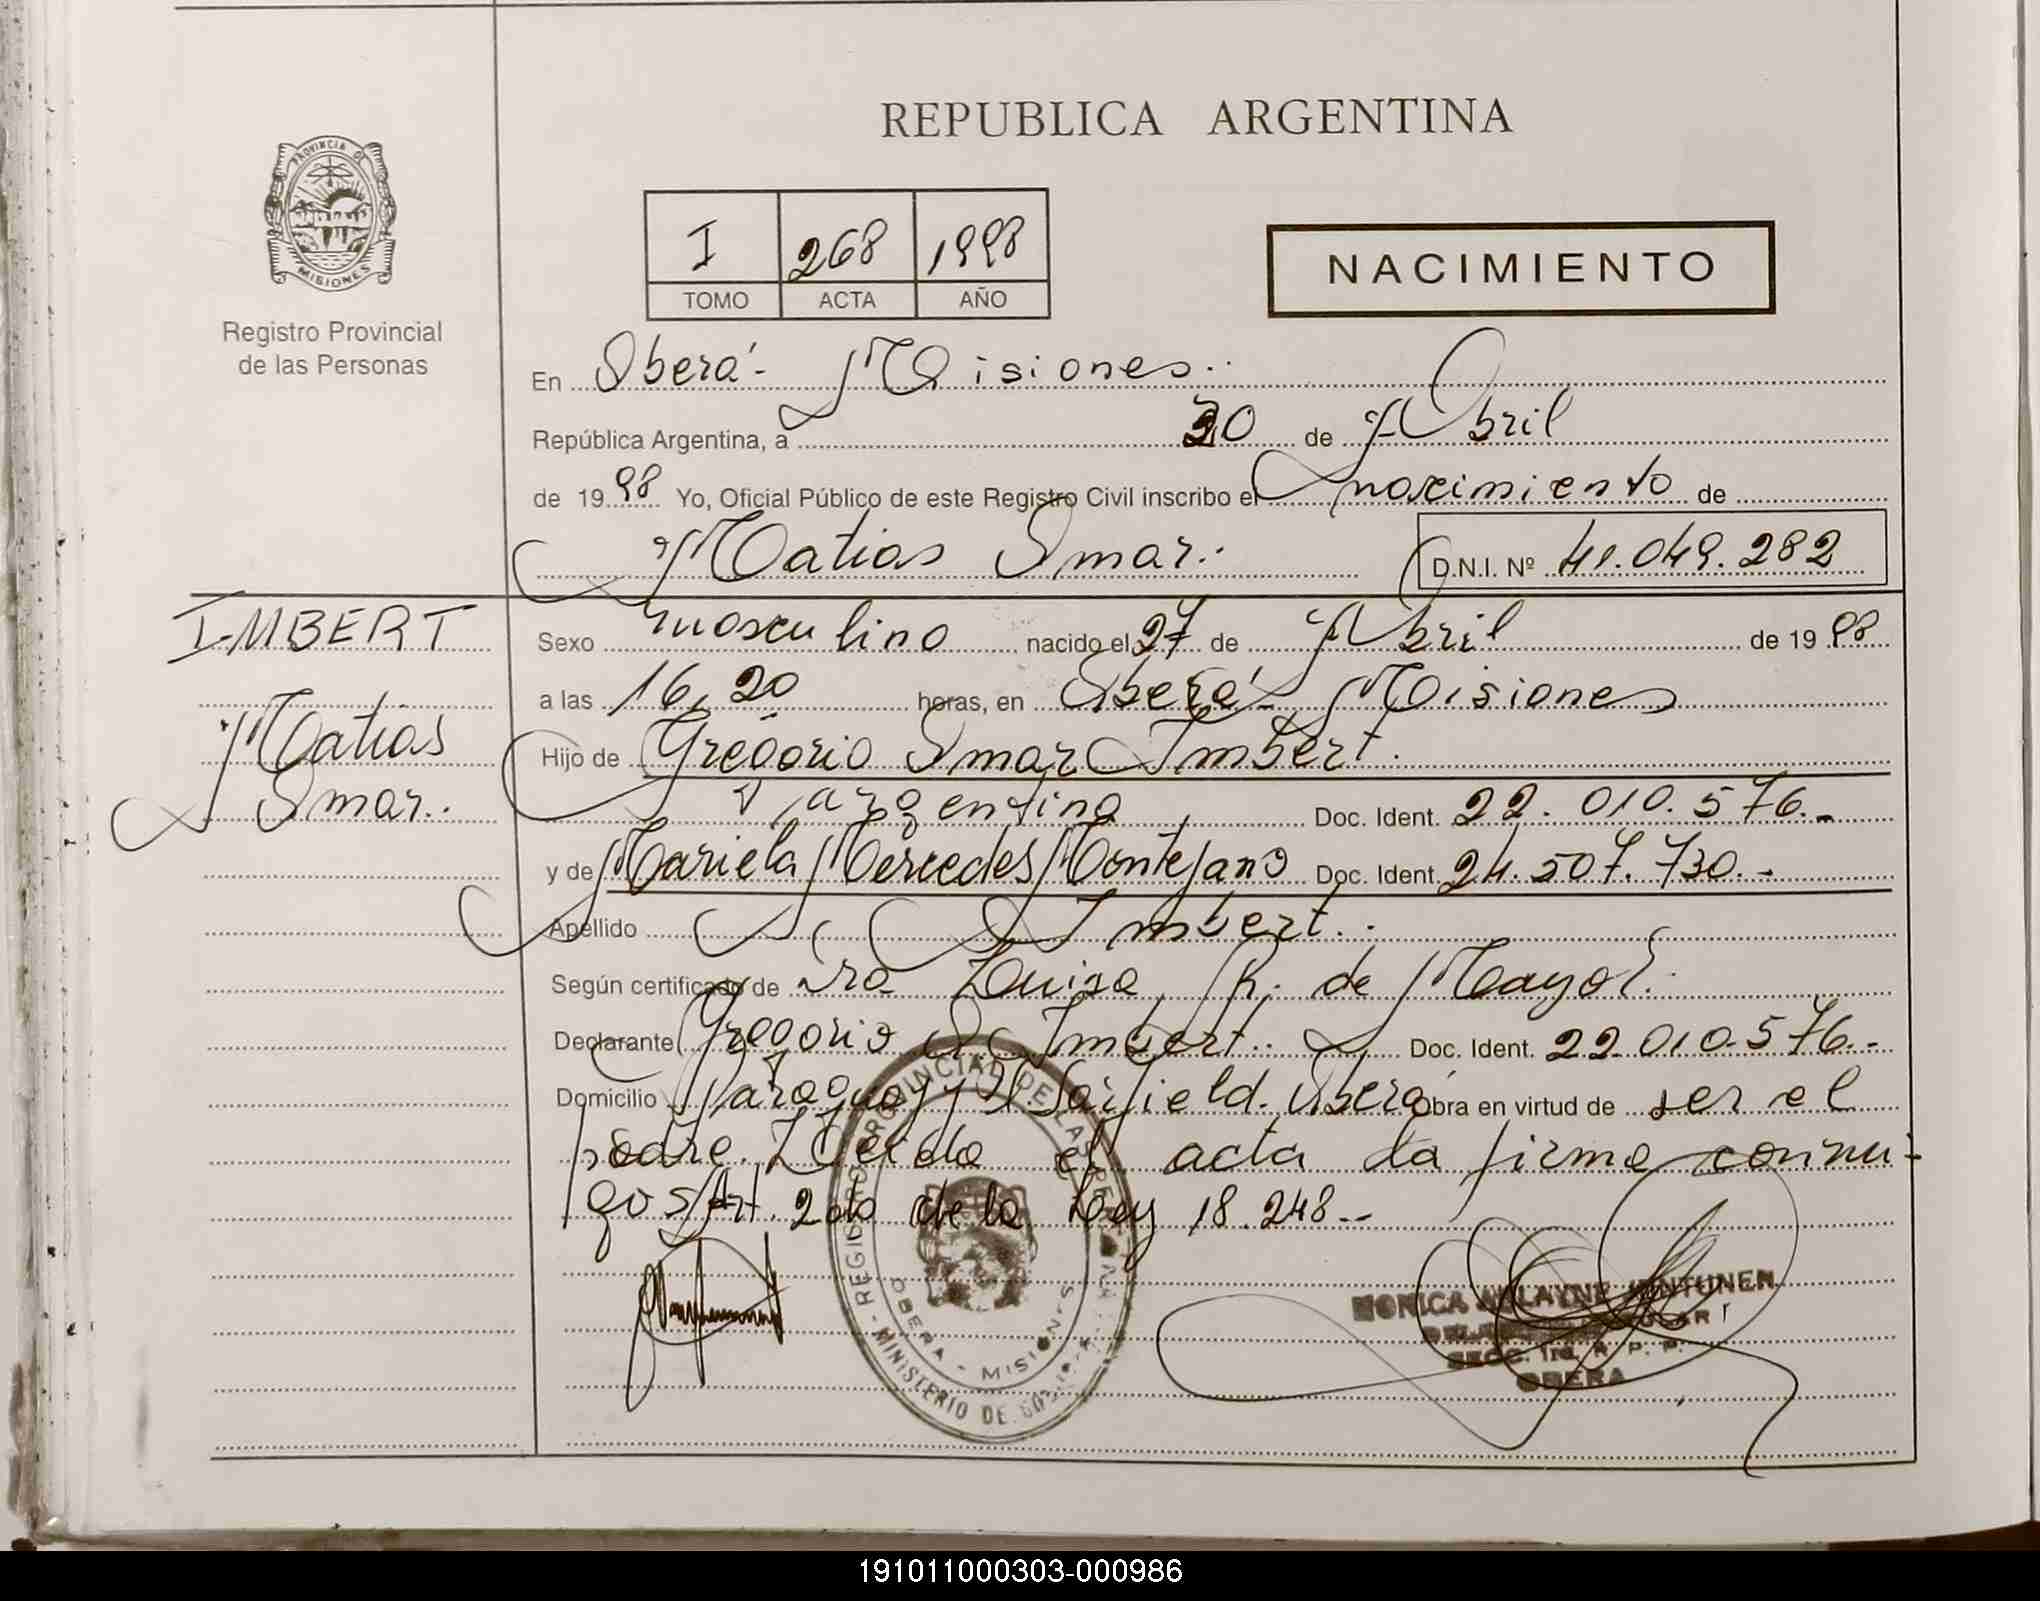 REPUBLICA ARGENTINA
PROVINCIA DE
MISIONES
Registro Provincial
de las Personas
I 268 1998
TOMO ACTA AÑO
NACIMIENTO
En Oberá- Misiones.-
República Argentina, a 30 de Abril
de 1998 Yo, Oficial Público de este Registro Civil inscribo el nacimiento de
Matias Omar.- D.N.I. Nº 41.049.282
IMBERT
Matias
Omar.-
Sexo masculino nacido el 27 de Abril de 1998
a las 16,20 horas, en Oberá- Misiones
Hijo de Gregorio Omar Imbert.
argentino Doc. Ident. 22.010.576.-
y de Mariela Mercedes Montejano Doc. Ident. 24.507.730.-
Apellido Imbert.-
Según certificado de Dra Luisa R. de Mayol.-
Declarante Gregorio O. Imbert.- Doc. Ident. 22.010.576.-
Domicilio Paraguay y V. Sarfield. Oberá Obra en virtud de ser el
padre. Leida el acta la firma conmi-
go S/Art. 2do de la Ley 18.248.-
REGISTRO PROVINCIAL DE LAS PERSONAS
MINISTERIO DE
OBERA - MISIONES
MONICA
SECC. 1ra. R. P. P.
OBERA
191011000303-000986